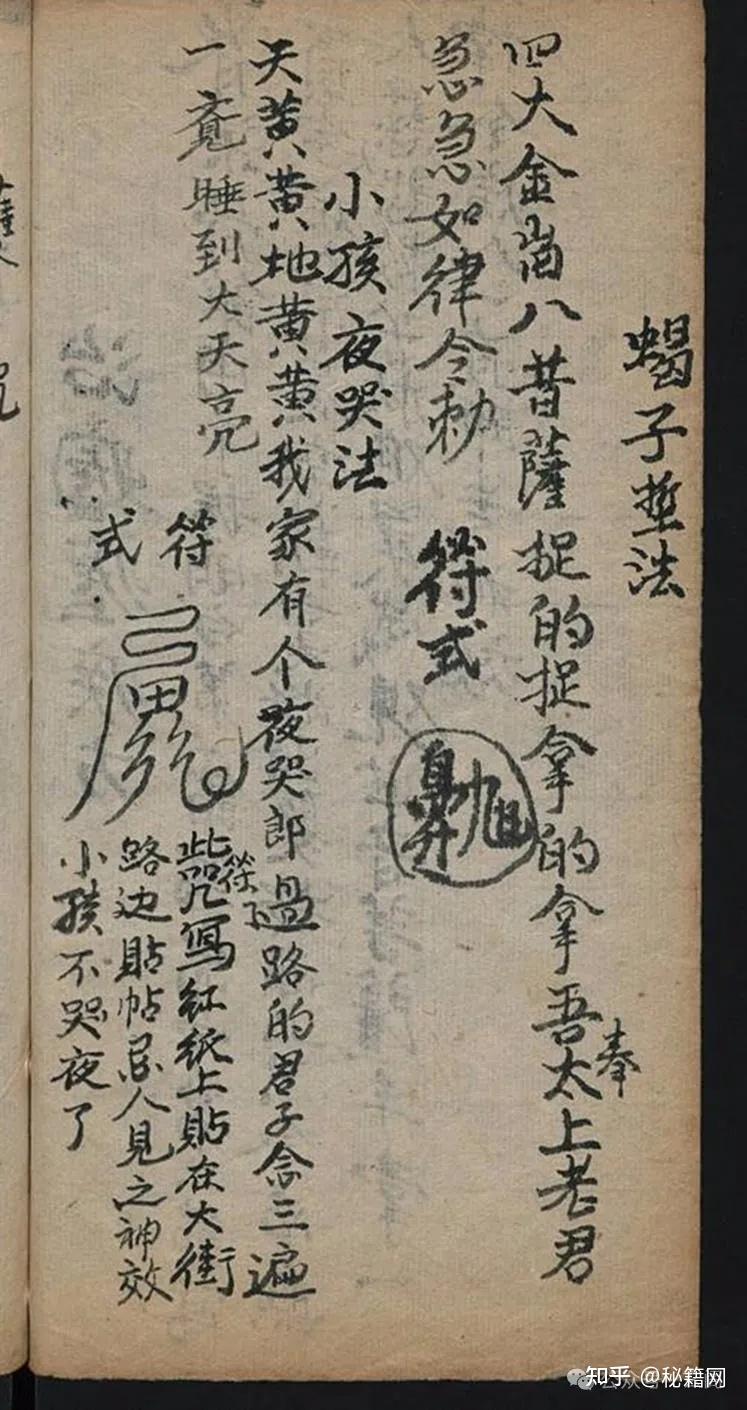 蝎子蜇法
四大金崗八昔薩捉的捉拿的拿吾奉太上老君
急急如律令勅
符式
小孩夜哭法
天黄黄地黄黄我家有个夜哭郎過路的君子念三遍
一覔睡到大天亮
符式
此符咒写红紙上貼在大街
路边貼帖忌人見之神效
小孩不哭夜了
知乎 @秘籍网